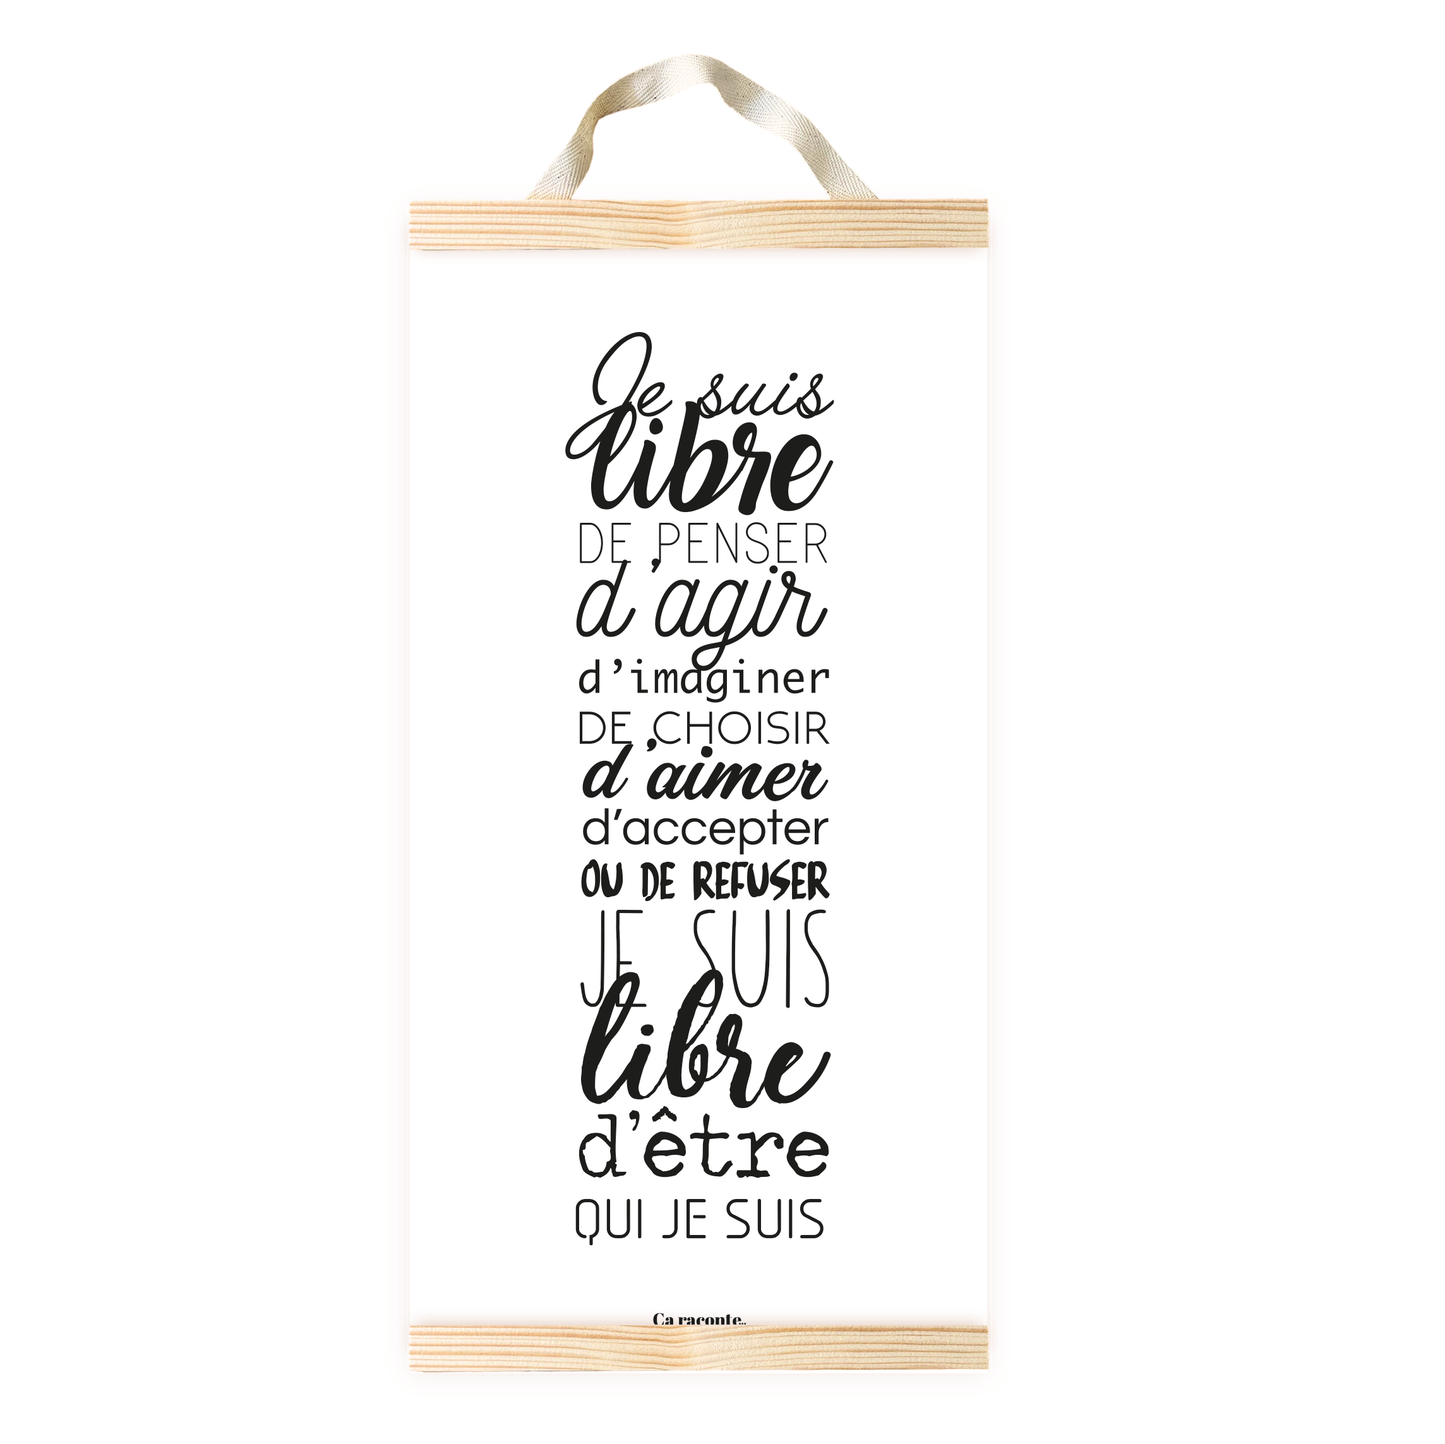 Je suis
libre
DE PENSER
d'agir
d'imaginer
DE CHOISIR
d'aimer
d'accepter
OU DE REFUSER
JE SUIS
libre
d'être
QUI JE SUIS
Ça raconte..